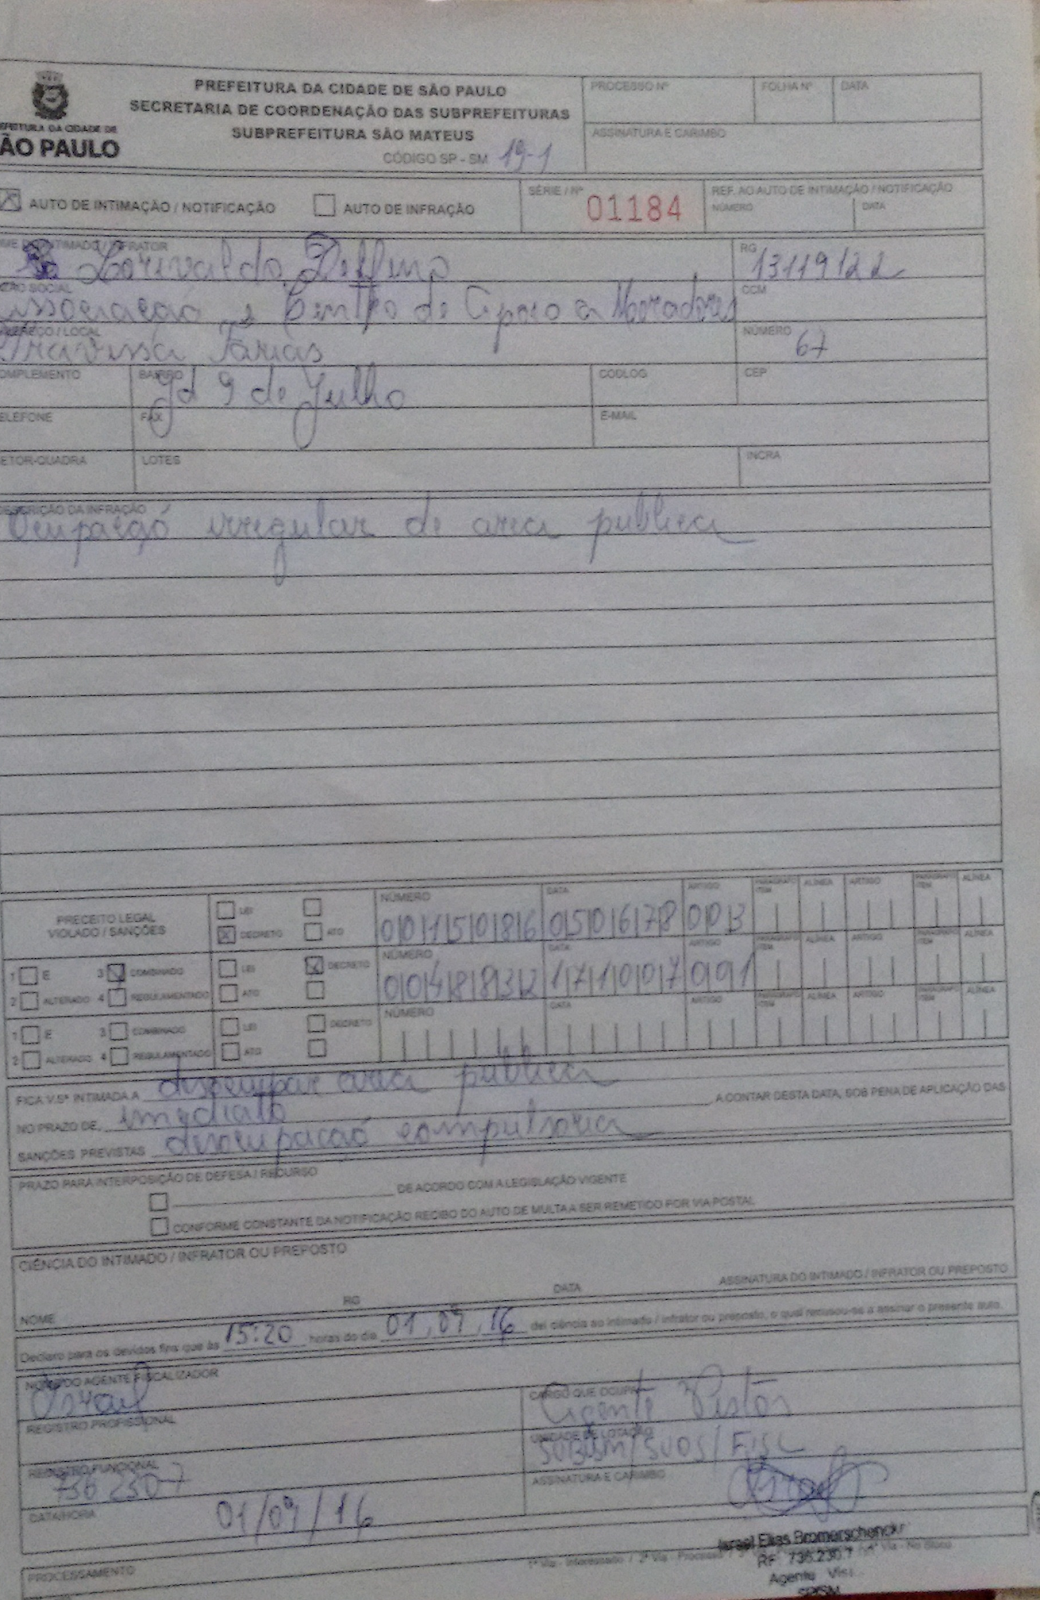 PREFEITURA DA CIDADE DE SÃO PAULO
SECRETARIA DE COORDENAÇÃO DAS SUBPREFEITURAS
SUBPREFEITURA SÃO MATEUS
CÓDIGO SP - SM 19-1
EFEITURA DA CIDADE DE
ÃO PAULO
PROCESSO Nº FOLHA Nº DATA
ASSINATURA E CARIMBO
AUTO DE INTIMAÇÃO / NOTIFICAÇÃO AUTO DE INFRAÇÃO
SÉRIE / Nº 01184
REF. AO AUTO DE INTIMAÇÃO / NOTIFICAÇÃO
NÚMERO DATA
INTIMADO / INFRATOR
Lorivaldo Delfino
RG 13119122
SOCIAL
ssociação e Centro de Apoio a Moradores
CCM
EREÇO / LOCAL
Travessa Farias
NÚMERO 67
OMPLEMENTO BAIRRO Jd 9 de Julho CODLOG CEP
ELEFONE FAX E-MAIL
ETOR-QUADRA LOTES INCRA
DESCRIÇÃO DA INFRAÇÃO
Ocupação irregular de area publica
PRECEITO LEGAL
VIOLADO / SANÇÕES
LEI
DECRETO ATO
NÚMERO DATA ARTIGO PARÁGRAFO ITEM ALÍNEA ARTIGO PARÁGRAFO ITEM ALÍNEA
00015086 050678 003
1 E 3 COMBINADO LEI DECRETO
2 ALTERADO 4 REGULAMENTADO ATO
NÚMERO DATA ARTIGO PARÁGRAFO ITEM ALÍNEA ARTIGO PARÁGRAFO ITEM ALÍNEA
00048832 171007 001
1 E 3 COMBINADO LEI DECRETO
2 ALTERADO 4 REGULAMENTADO ATO
NÚMERO DATA ARTIGO PARÁGRAFO ITEM ALÍNEA ARTIGO PARÁGRAFO ITEM ALÍNEA
FICA V.Sª INTIMADA A desocupar area publica
NO PRAZO DE, imediato A CONTAR DESTA DATA, SOB PENA DE APLICAÇÃO DAS
SANÇÕES PREVISTAS desocupação compulsoria
PRAZO PARA INTERPOSIÇÃO DE DEFESA / RECURSO
DE ACORDO COM A LEGISLAÇÃO VIGENTE
CONFORME CONSTANTE DA NOTIFICAÇÃO RECIBO DO AUTO DE MULTA A SER REMETIDO POR VIA POSTAL
CIÊNCIA DO INTIMADO / INFRATOR OU PREPOSTO
NOME RG DATA ASSINATURA DO INTIMADO / INFRATOR OU PREPOSTO
Declaro para os devidos fins que às 15:20 horas do dia 01,09,16 dei ciência ao intimado / infrator ou preposto, o qual recusou-se a assinar o presente auto.
NOME DO AGENTE FISCALIZADOR
Israel
CARGO QUE OCUPA
Agente Vistor
REGISTRO PROFISSIONAL
UNIDADE DE LOTAÇÃO
REGISTRO FUNCIONAL
736 230-7
ASSINATURA E CARIMBO
DATA/HORA 01/09/16
Israel Elias Bromerschenckr
RF 736.230.7
Agente Vist
SPISM
PROCESSAMENTO
1ª Via - Interessado / 2ª Via - Processo